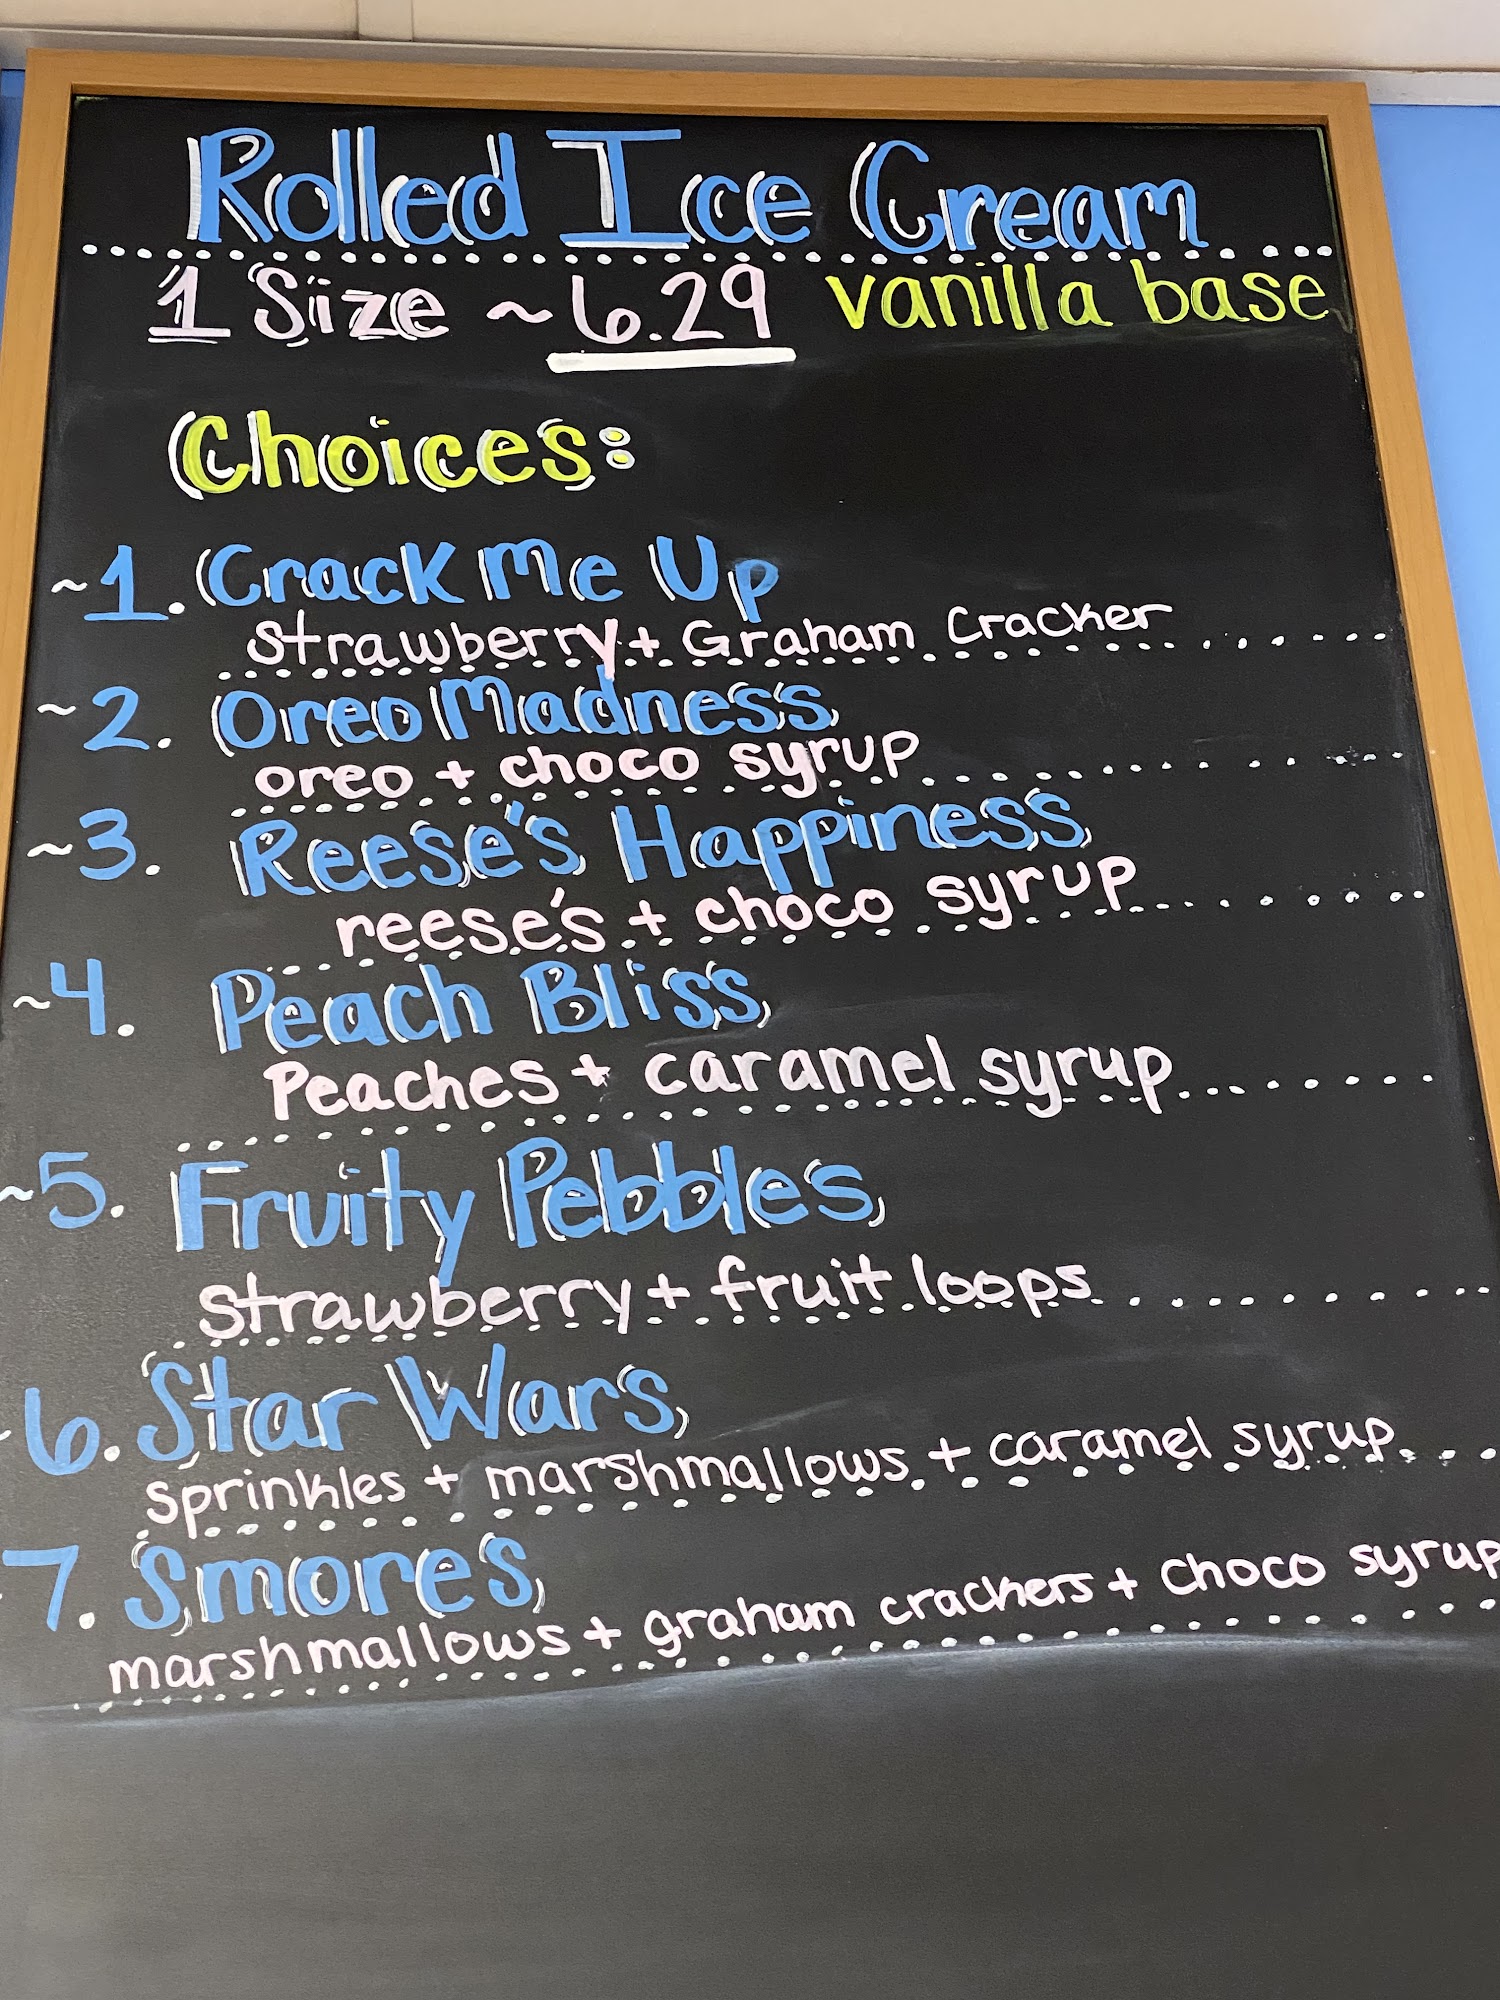 Rolled Ice Cream
1 Size ~ 6.29 vanilla base
Choices:
~1. Crack Me Up
Strawberry + Graham Cracker
~2. Oreo Madness
oreo + choco syrup
~3. Reese's Happiness
reese's + choco syrup
~4. Peach Bliss
Peaches + caramel syrup
~5. Fruity Pebbles
Strawberry + fruit loops
6. Star Wars
sprinkles + marshmallows + caramel syrup
7. Smores
marshmallows + graham crackers + choco syrup